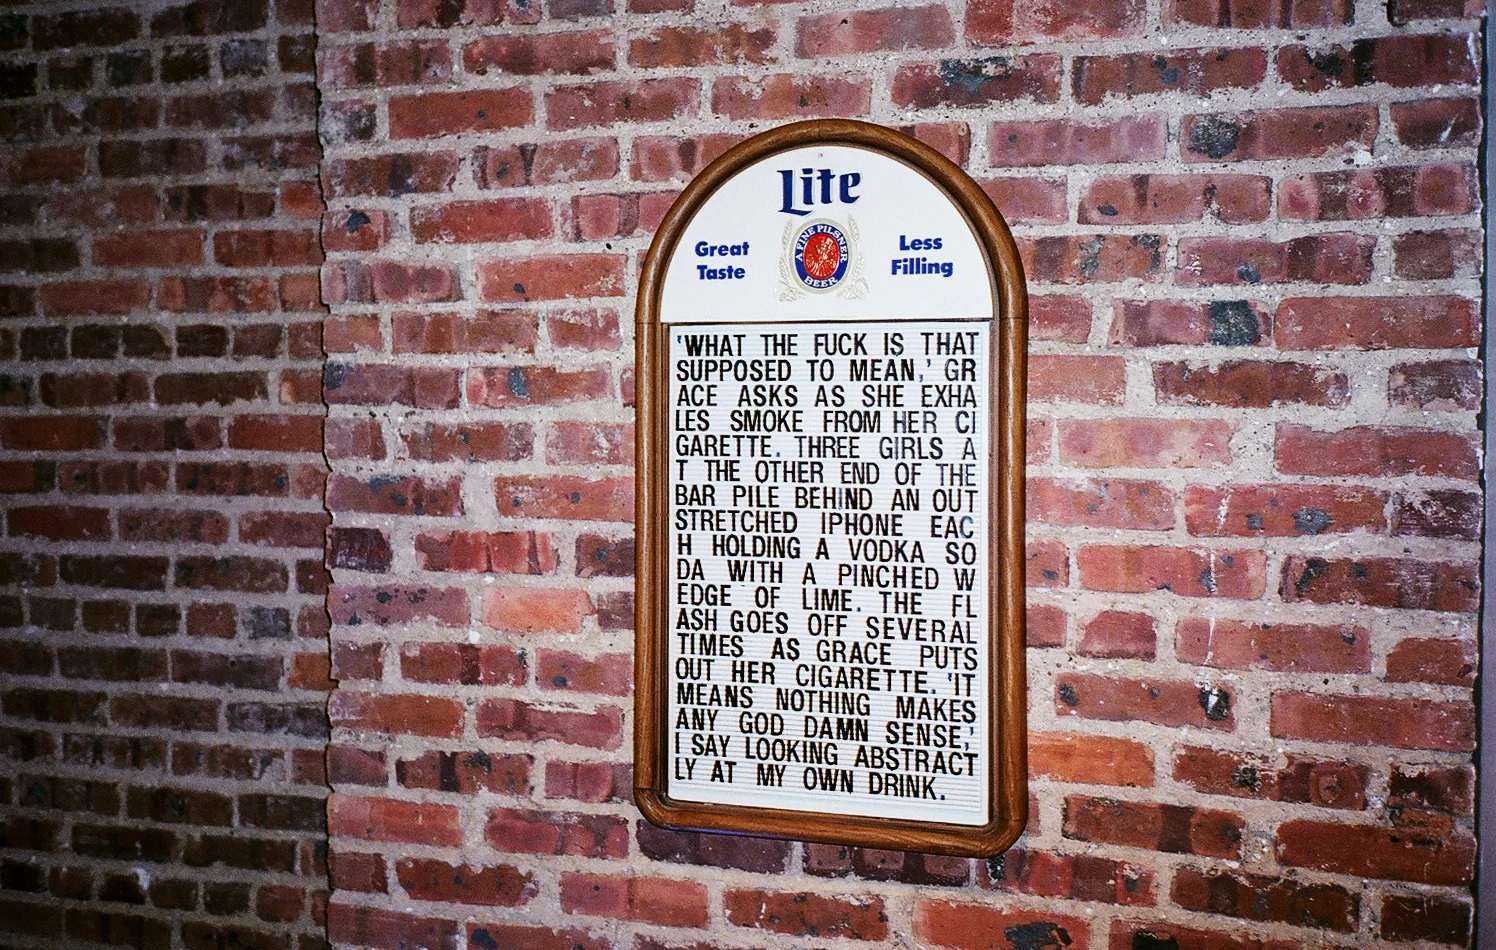 Lite
Great
Taste
A FINE PILSNER
BEER
Less
Filling
'WHAT THE FUCK IS THAT
SUPPOSED TO MEAN,' GR
ACE ASKS AS SHE EXHA
LES SMOKE FROM HER CI
GARETTE. THREE GIRLS A
T THE OTHER END OF THE
BAR PILE BEHIND AN OUT
STRETCHED IPHONE EAC
H HOLDING A VODKA SO
DA WITH A PINCHED W
EDGE OF LIME. THE FL
ASH GOES OFF SEVERAL
TIMES AS GRACE PUTS
OUT HER CIGARETTE. 'IT
MEANS NOTHING MAKES
ANY GOD DAMN SENSE,'
I SAY LOOKING ABSTRACT
LY AT MY OWN DRINK.